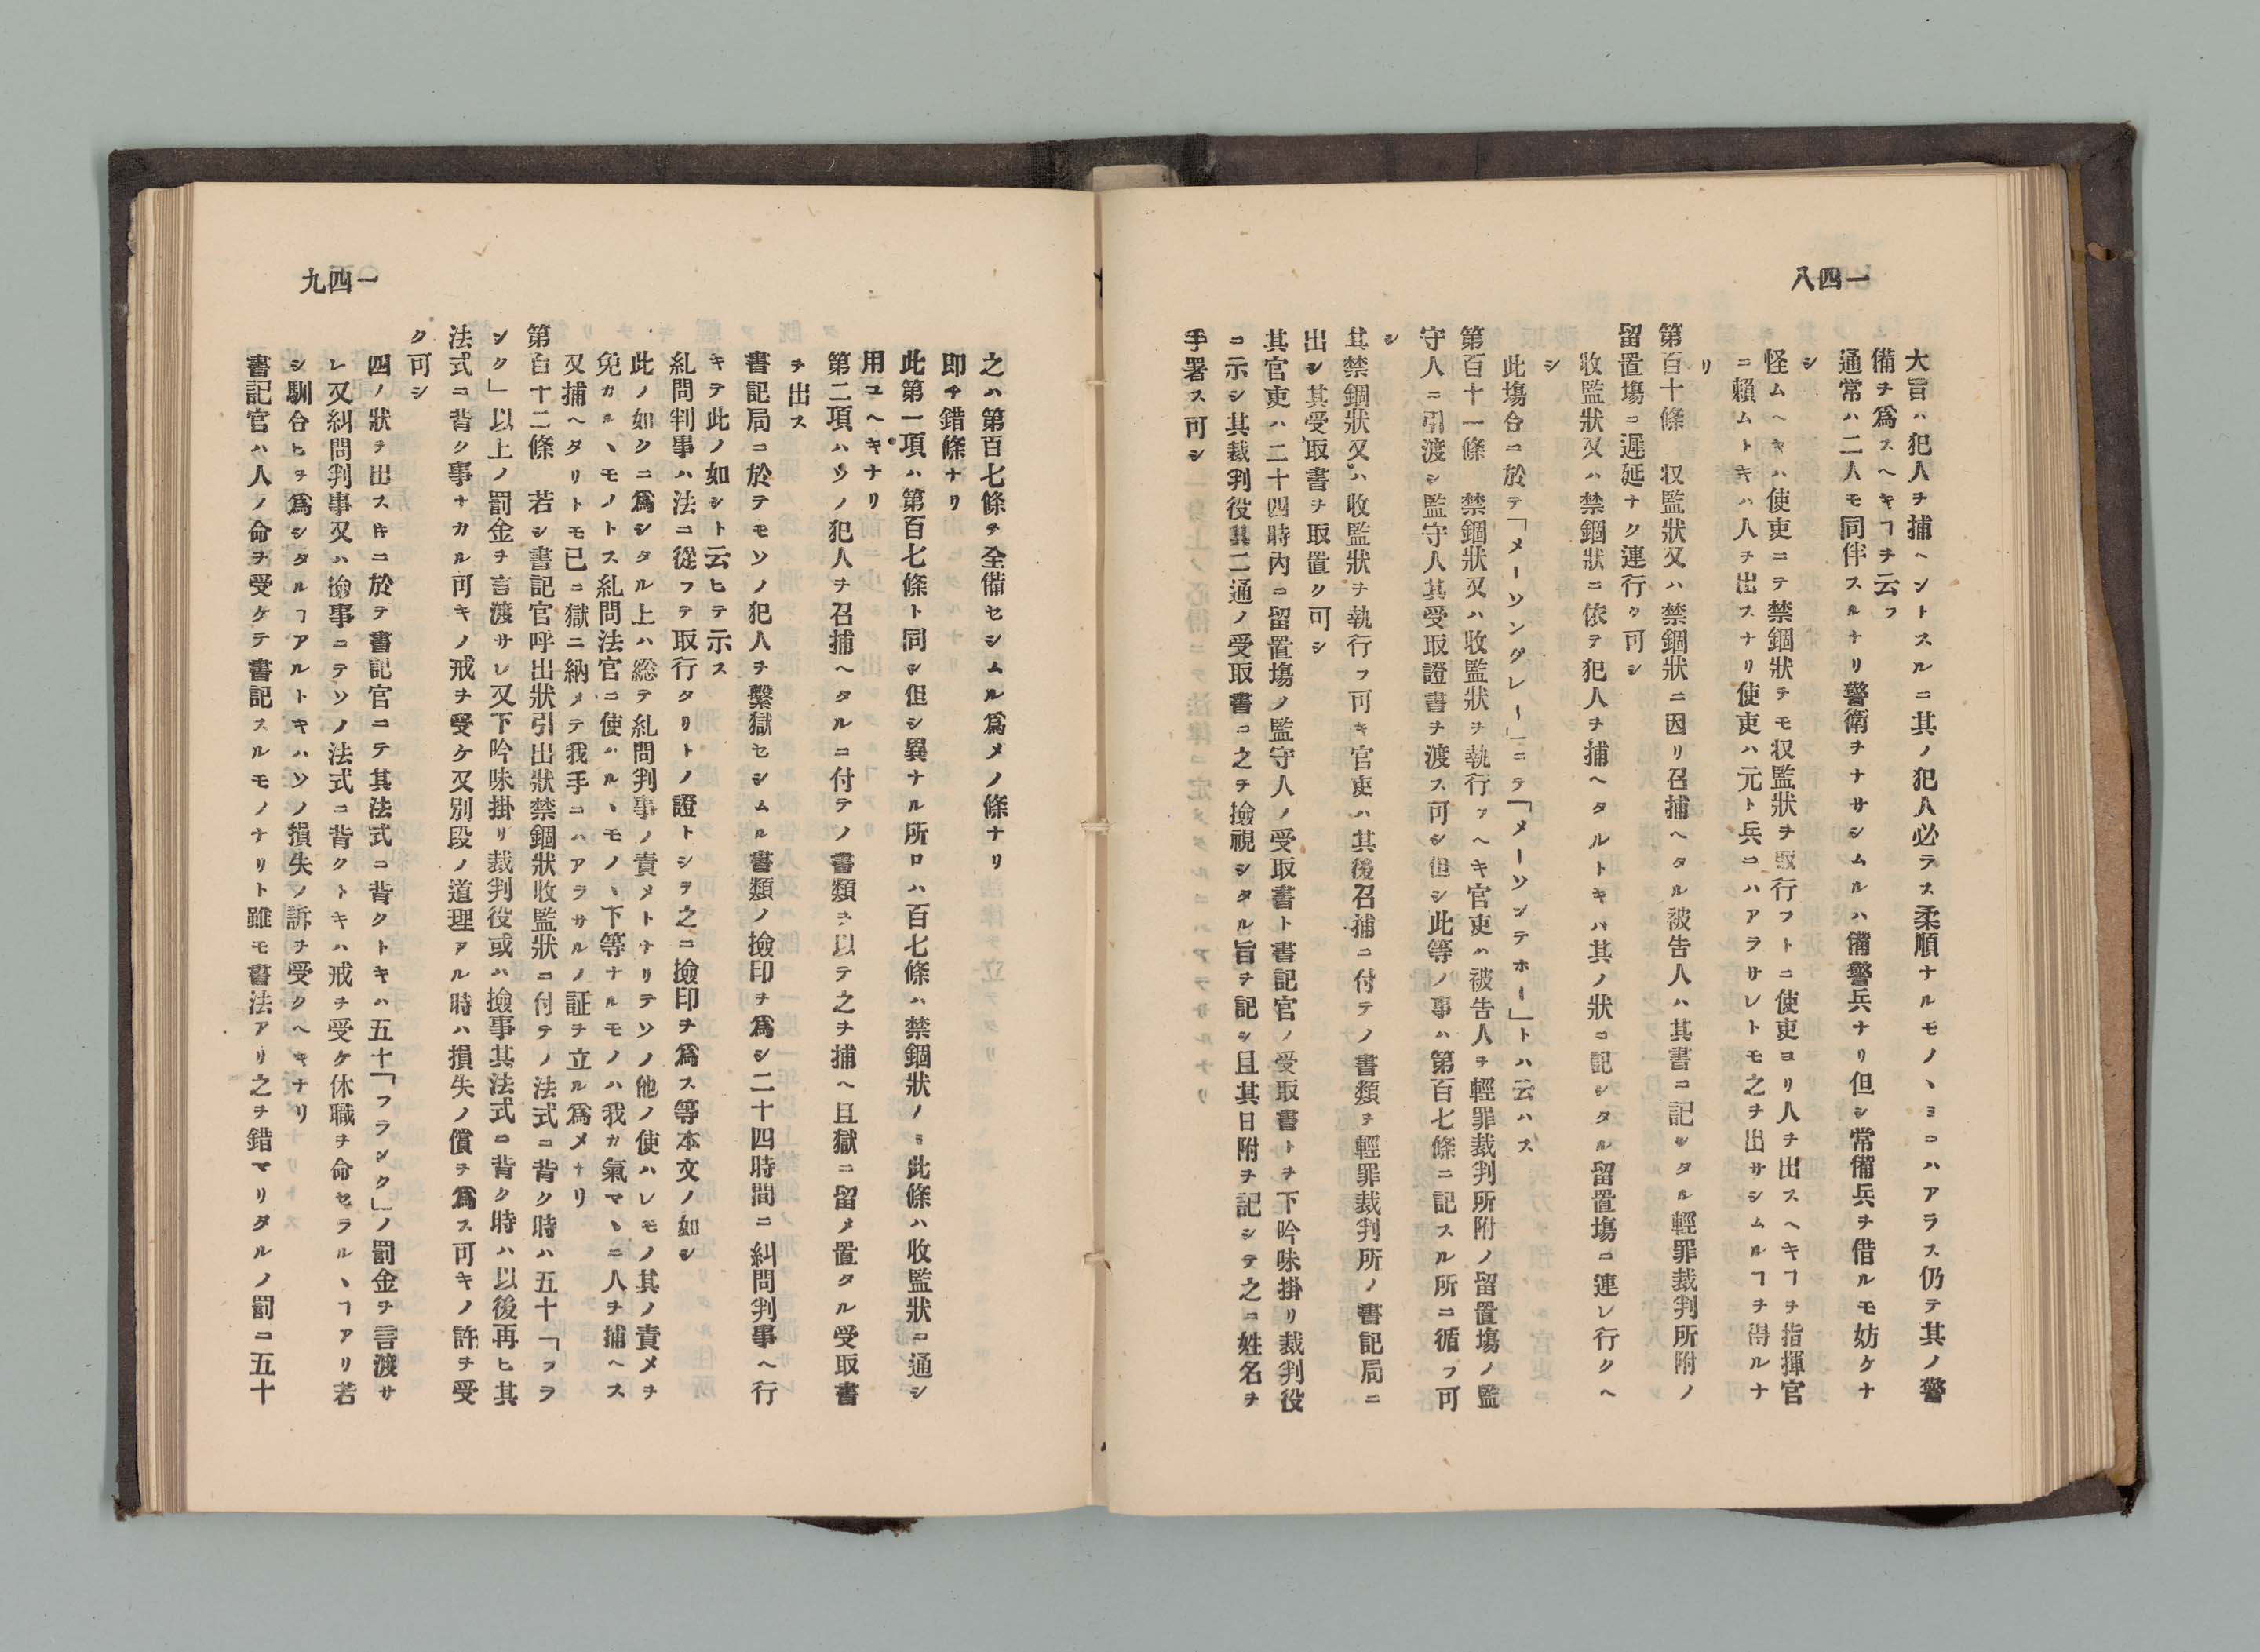 一四八
大旨ハ犯人ヲ捕ヘントスルニ其ノ犯人必ラス柔順ナルモノヽミニハアラス仍テ其ノ警
備ヲ爲スヘキヿヲ云フ
通常ハ二人モ同伴スルナリ警衛ヲナサシムルハ備警兵ナリ但シ常備兵ヲ借ルモ妨ケナ
シ
怪ムヘキハ使吏ニテ禁錮狀ヲモ収監狀ヲモ取行フトニ使吏ヨリ人ヲ出スヘキヿヲ指揮官
ニ賴ムトキハ人ヲ出スナリ使吏ハ元ト兵ニハアラサレトモ之ヲ出サシムルヿヲ得ルナ
リ
第百十條　収監狀又ハ禁錮狀ニ因リ召捕ヘタル被告人ハ其書ニ記シタル輕罪裁判所附ノ
留置塲ニ遲延ナク連行ク可シ
收監狀又ハ禁錮狀ニ依テ犯人ヲ捕ヘタルトキハ其ノ狀ニ記シタル留置塲ニ連レ行クヘ
シ
此塲合ニ於テ「メーソングレー」ニテ「メーソンテホー」トハ云ハス
第百十一條　禁錮狀又ハ收監狀ヲ執行フヘキ官吏ハ被告人ヲ輕罪裁判所附ノ留置塲ノ監
守人ニ引渡シ監守人其受取證書ヲ渡ス可シ但シ此等ノ事ハ第百七條ニ記スル所ニ循フ可
シ
其禁錮狀又ハ收監狀ヲ執行フ可キ官吏ハ其後召捕ニ付テノ書類ヲ輕罪裁判所ノ書記局ニ
出シ其受取書ヲ取置ク可シ
其官吏ハ二十四時內ニ留置塲ノ監守人ノ受取書ト書記官ノ受取書トヲ下吟味掛リ裁判役
ニ示シ其裁判役其二通ノ受取書ニ之ヲ撿視シタル旨ヲ記シ且其日附ヲ記シテ之ニ姓名ヲ
手署ス可シ
一四九
之ハ第百七條ヲ全備セシムル爲メノ條ナリ
即チ錯條ナリ
此第一項ハ第百七條ト同シ但シ異ナル所ロハ百七條ハ禁錮狀ノミ此條ハ收監狀ニ通シ
用ユヘキナリ
第二項ハソノ犯人ヲ召捕ヘタルニ付テノ書類ヲ以テ之ヲ捕ヘ且獄ニ留メ置タル受取書
ヲ出ス
書記局ニ於テモソノ犯人ヲ繫獄セシムル書類ノ撿印ヲ爲シ二十四時間ニ糾問判事ヘ行
キテ此ノ如シト云ヒテ示ス
糺問判事ハ法ニ從フテ取行タリトノ證トシテ之ニ撿印ヲ爲ス等本文ノ如シ
此ノ如クニ爲シタル上ハ総テ糺問判事ノ責メトナリテソノ他ノ使ハレモノ其ノ責メヲ
免カルヽモノトス糺問法官ニ使ハルヽモノヽ下等ナルモノハ我カ氣マヽニ人ヲ捕ヘス
又捕ヘタリトモ已ニ獄ニ納メテ我手ニハアラサルノ証ヲ立ル爲メナリ
第百十二條　若シ書記官呼出狀引出狀禁錮狀收監狀ニ付テノ法式ニ背ク時ハ五十「フラ
ンク」以上ノ罰金ヲ言渡サレ又下吟味掛リ裁判役或ハ撿事其法式ニ背ク時ハ以後再ヒ其
法式ニ背ク事ナカル可キノ戒ヲ受ケ又別段ノ道理アル時ハ損失ノ償ヲ爲ス可キノ訴ヲ受
ク可シ
四ノ狀ヲ出スキニ於テ書記官ニテ其法式ニ背クトキハ五十「フランク」ノ罰金ヲ言渡サ
レ又糾問判事又ハ撿事ニテソノ法式ニ背クトキハ戒ヲ受ケ休職ヲ命セラルヽヿアリ若
シ馴合ヒヲ爲シタルヿアルトキハソノ損失ノ訴ヲ受クヘキナリ
書記官ハ人ノ命ヲ受ケテ書記スルモノナリト雖モ書法アリ之ヲ錯マリタルノ罰ニ五十